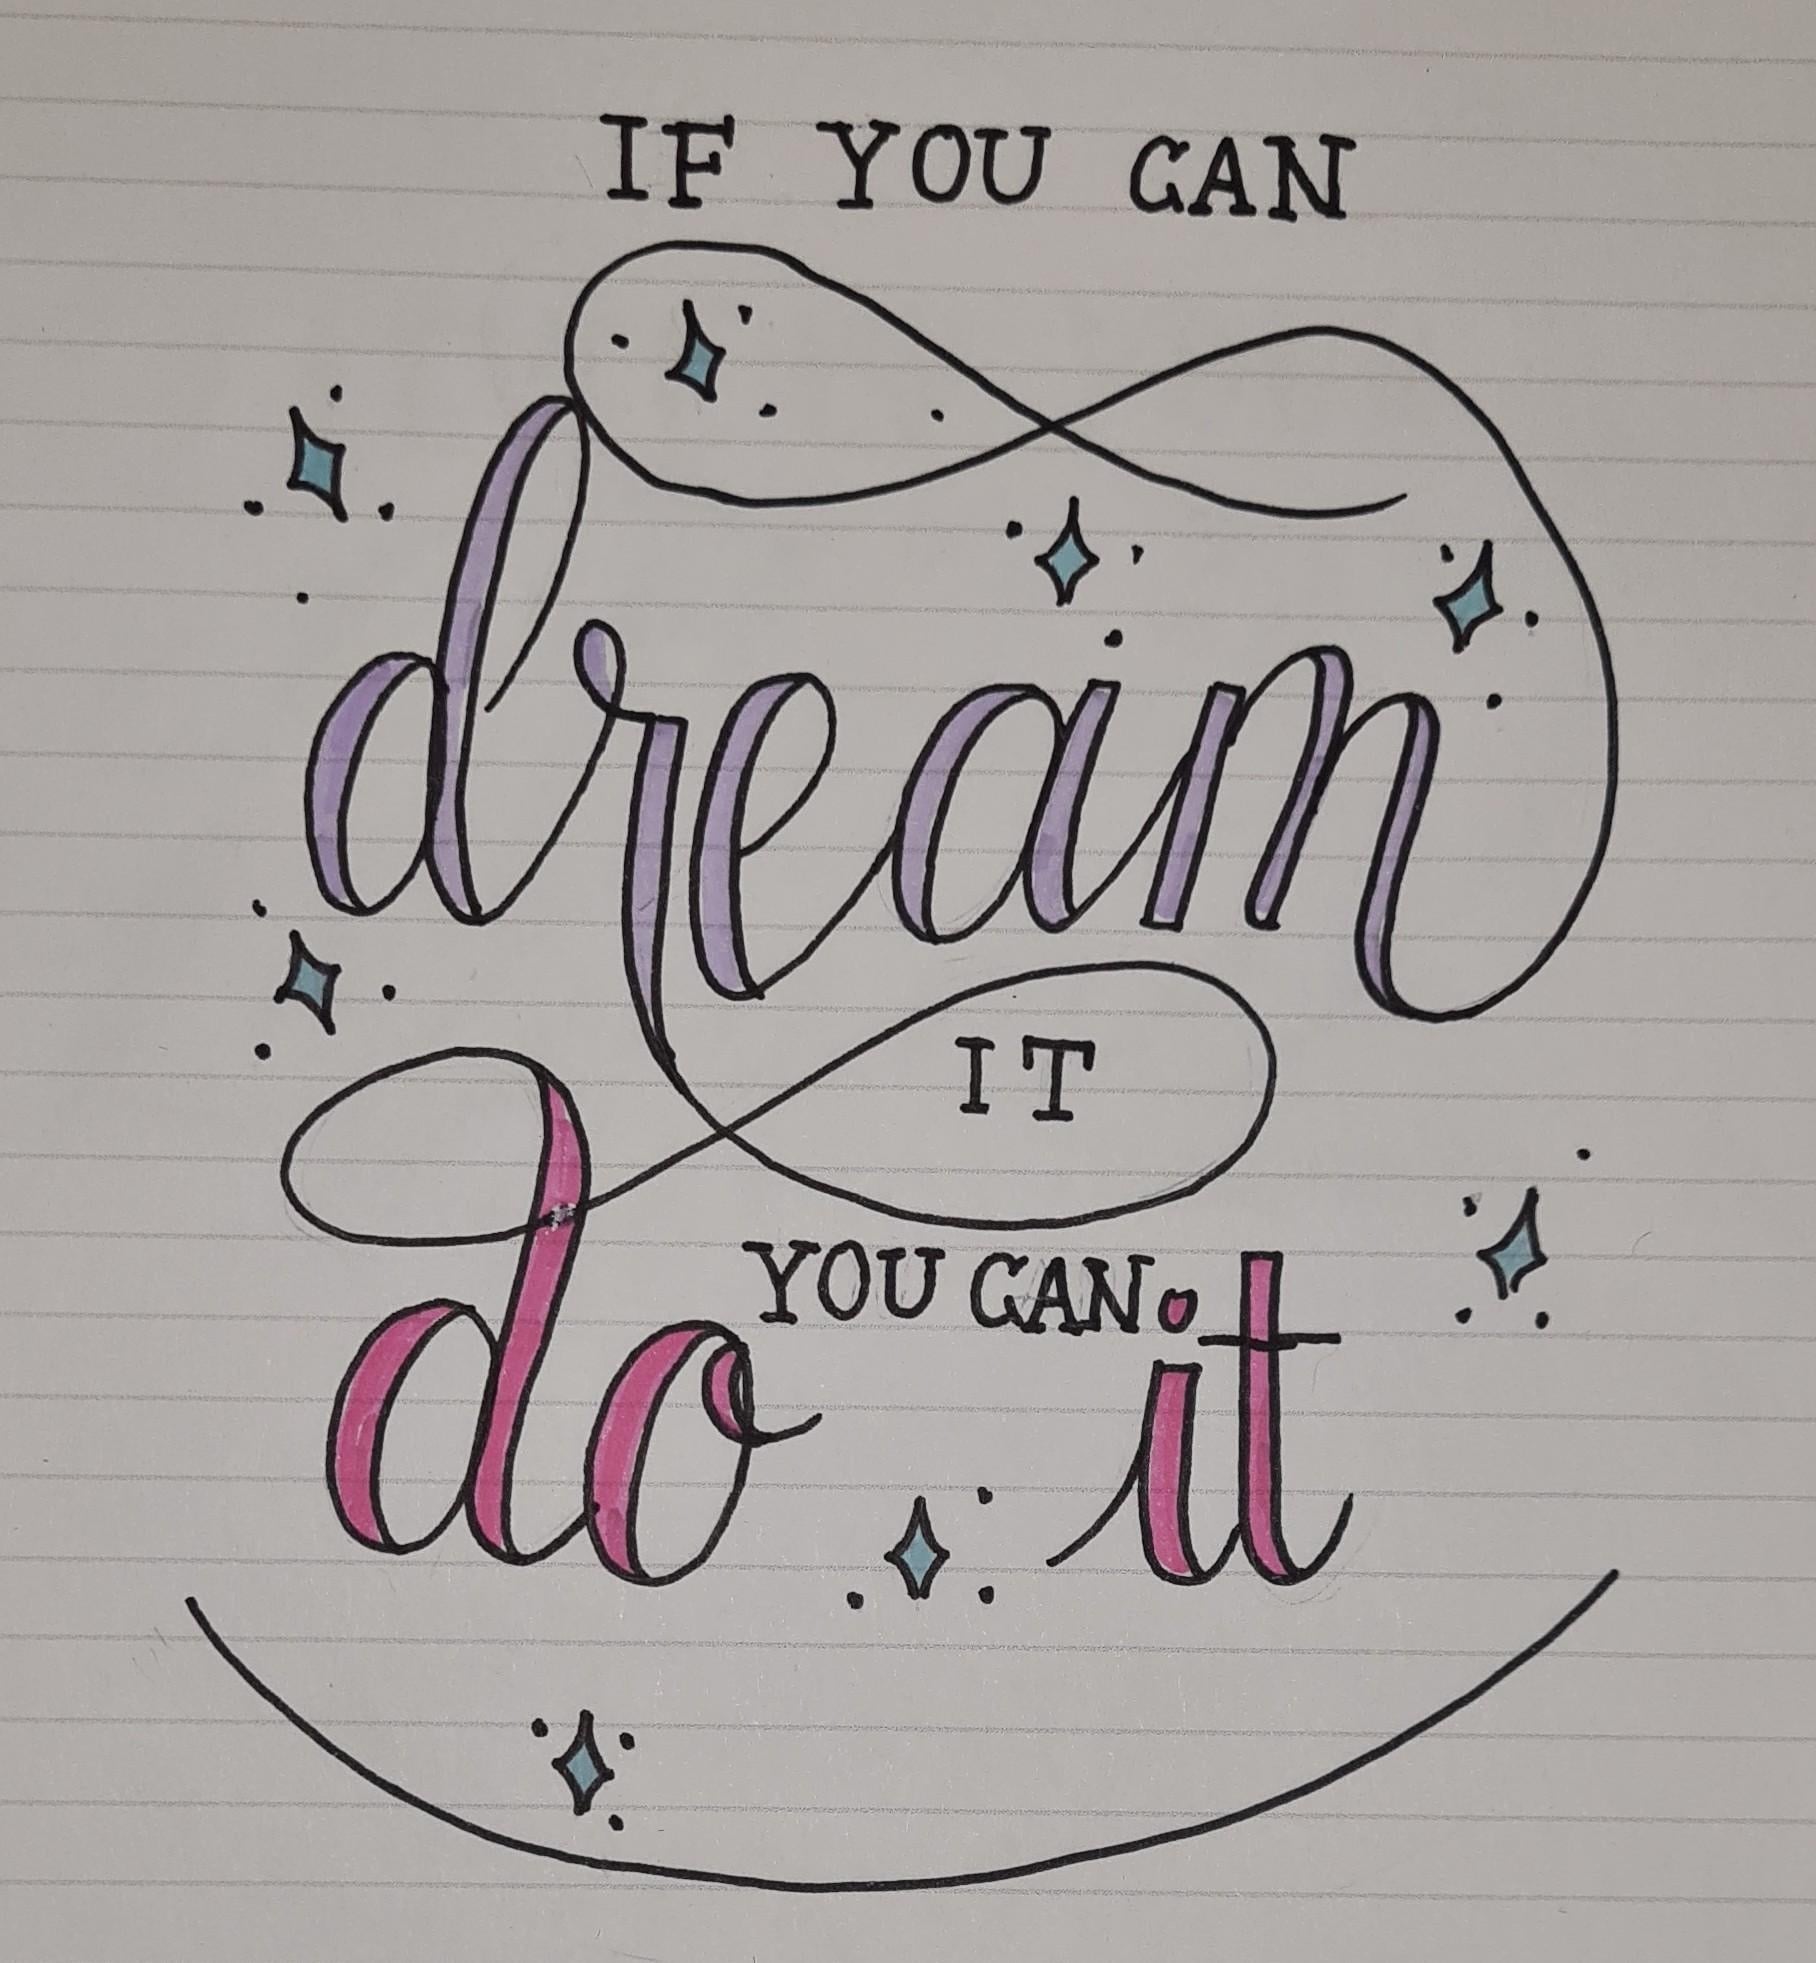 IF YOU CAN
dream
IT
YOU CAN
do it